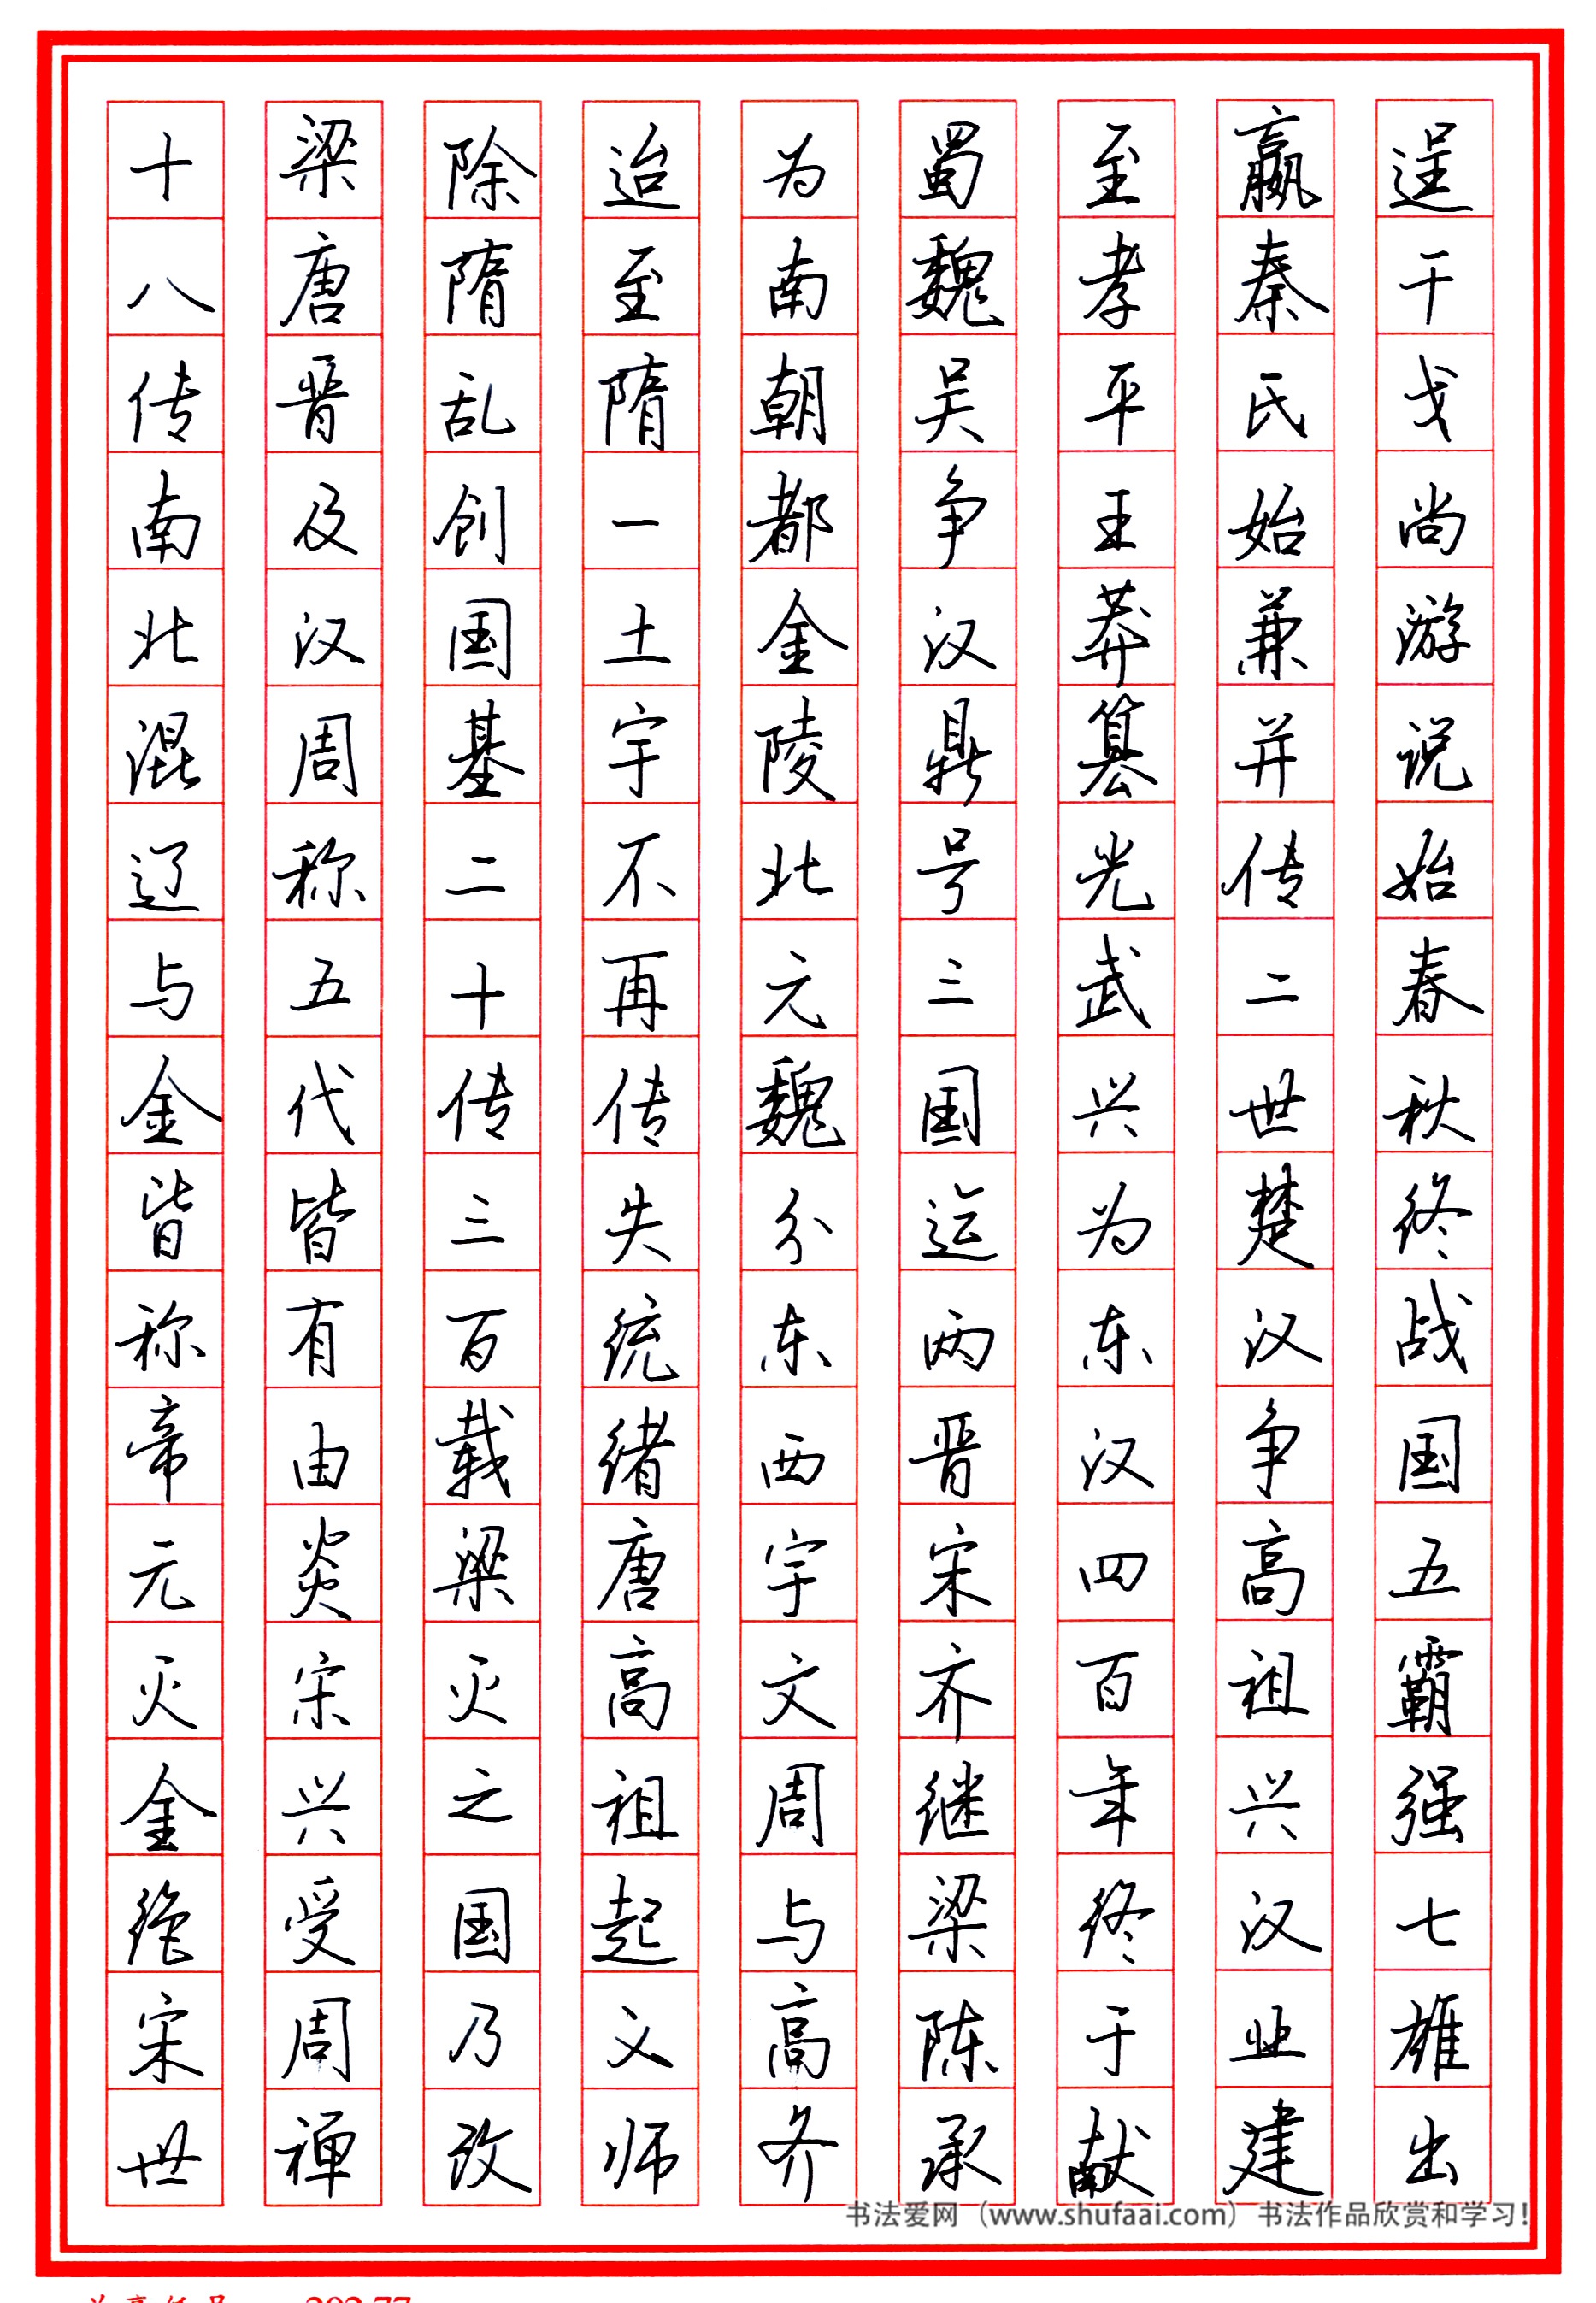 逞干戈尚游说始春秋终战国五霸强七雄出
嬴秦氏始兼并传二世楚汉争高祖兴汉业建
至孝平王莽篡光武兴为东汉四百年终于献
蜀魏吴争汉鼎号三国迄两晋宋齐继梁陈承
为南朝都金陵北元魏分东西宇文周与高齐
迨至隋一土宇不再传失统绪唐高祖起义师
除隋乱创国基二十传三百载梁灭之国乃改
梁唐晋及汉周称五代皆有由炎宋兴受周禅
十八传南北混辽与金皆称帝元灭金绝宋世
书法爱网（www.shufaai.com）书法作品欣赏和学习！